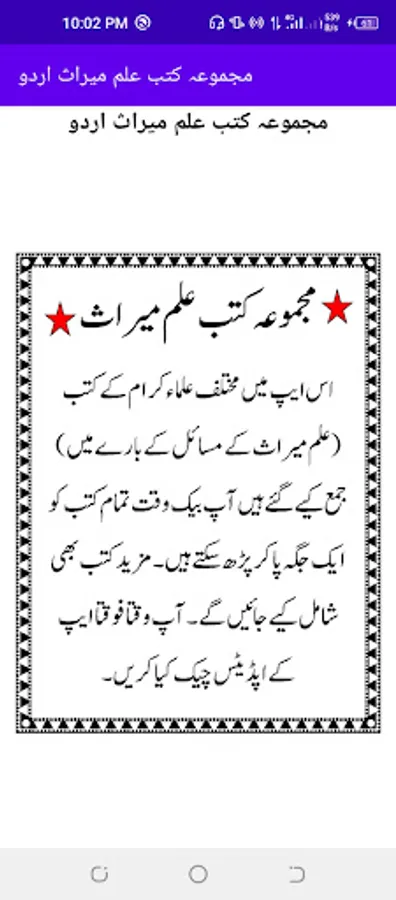 10:02 PM
مجموعہ کتب علم میراث اردو
مجموعہ کتب علم میراث اردو
مجموعہ کتب علم میراث
اس ایپ میں مختلف علماء کرام کے کتب
(علم میراث کے مسائل کے بارے میں)
جمع کیے گئے ہیں آپ بیک وقت تمام کتب کو
ایک جگہ پا کر پڑھ سکتے ہیں۔ مزید کتب بھی
شامل کیے جائیں گے۔ آپ وقتا فوقتا ایپ
کے اپڈیٹس چیک کیا کریں۔